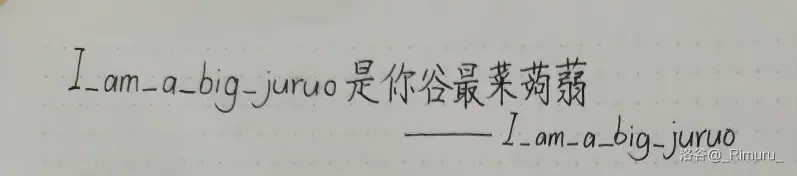 I_am_a_big_juruo是你谷最菜蒟蒻
——I_am_a_big_juruo
洛谷@_Rimuru_